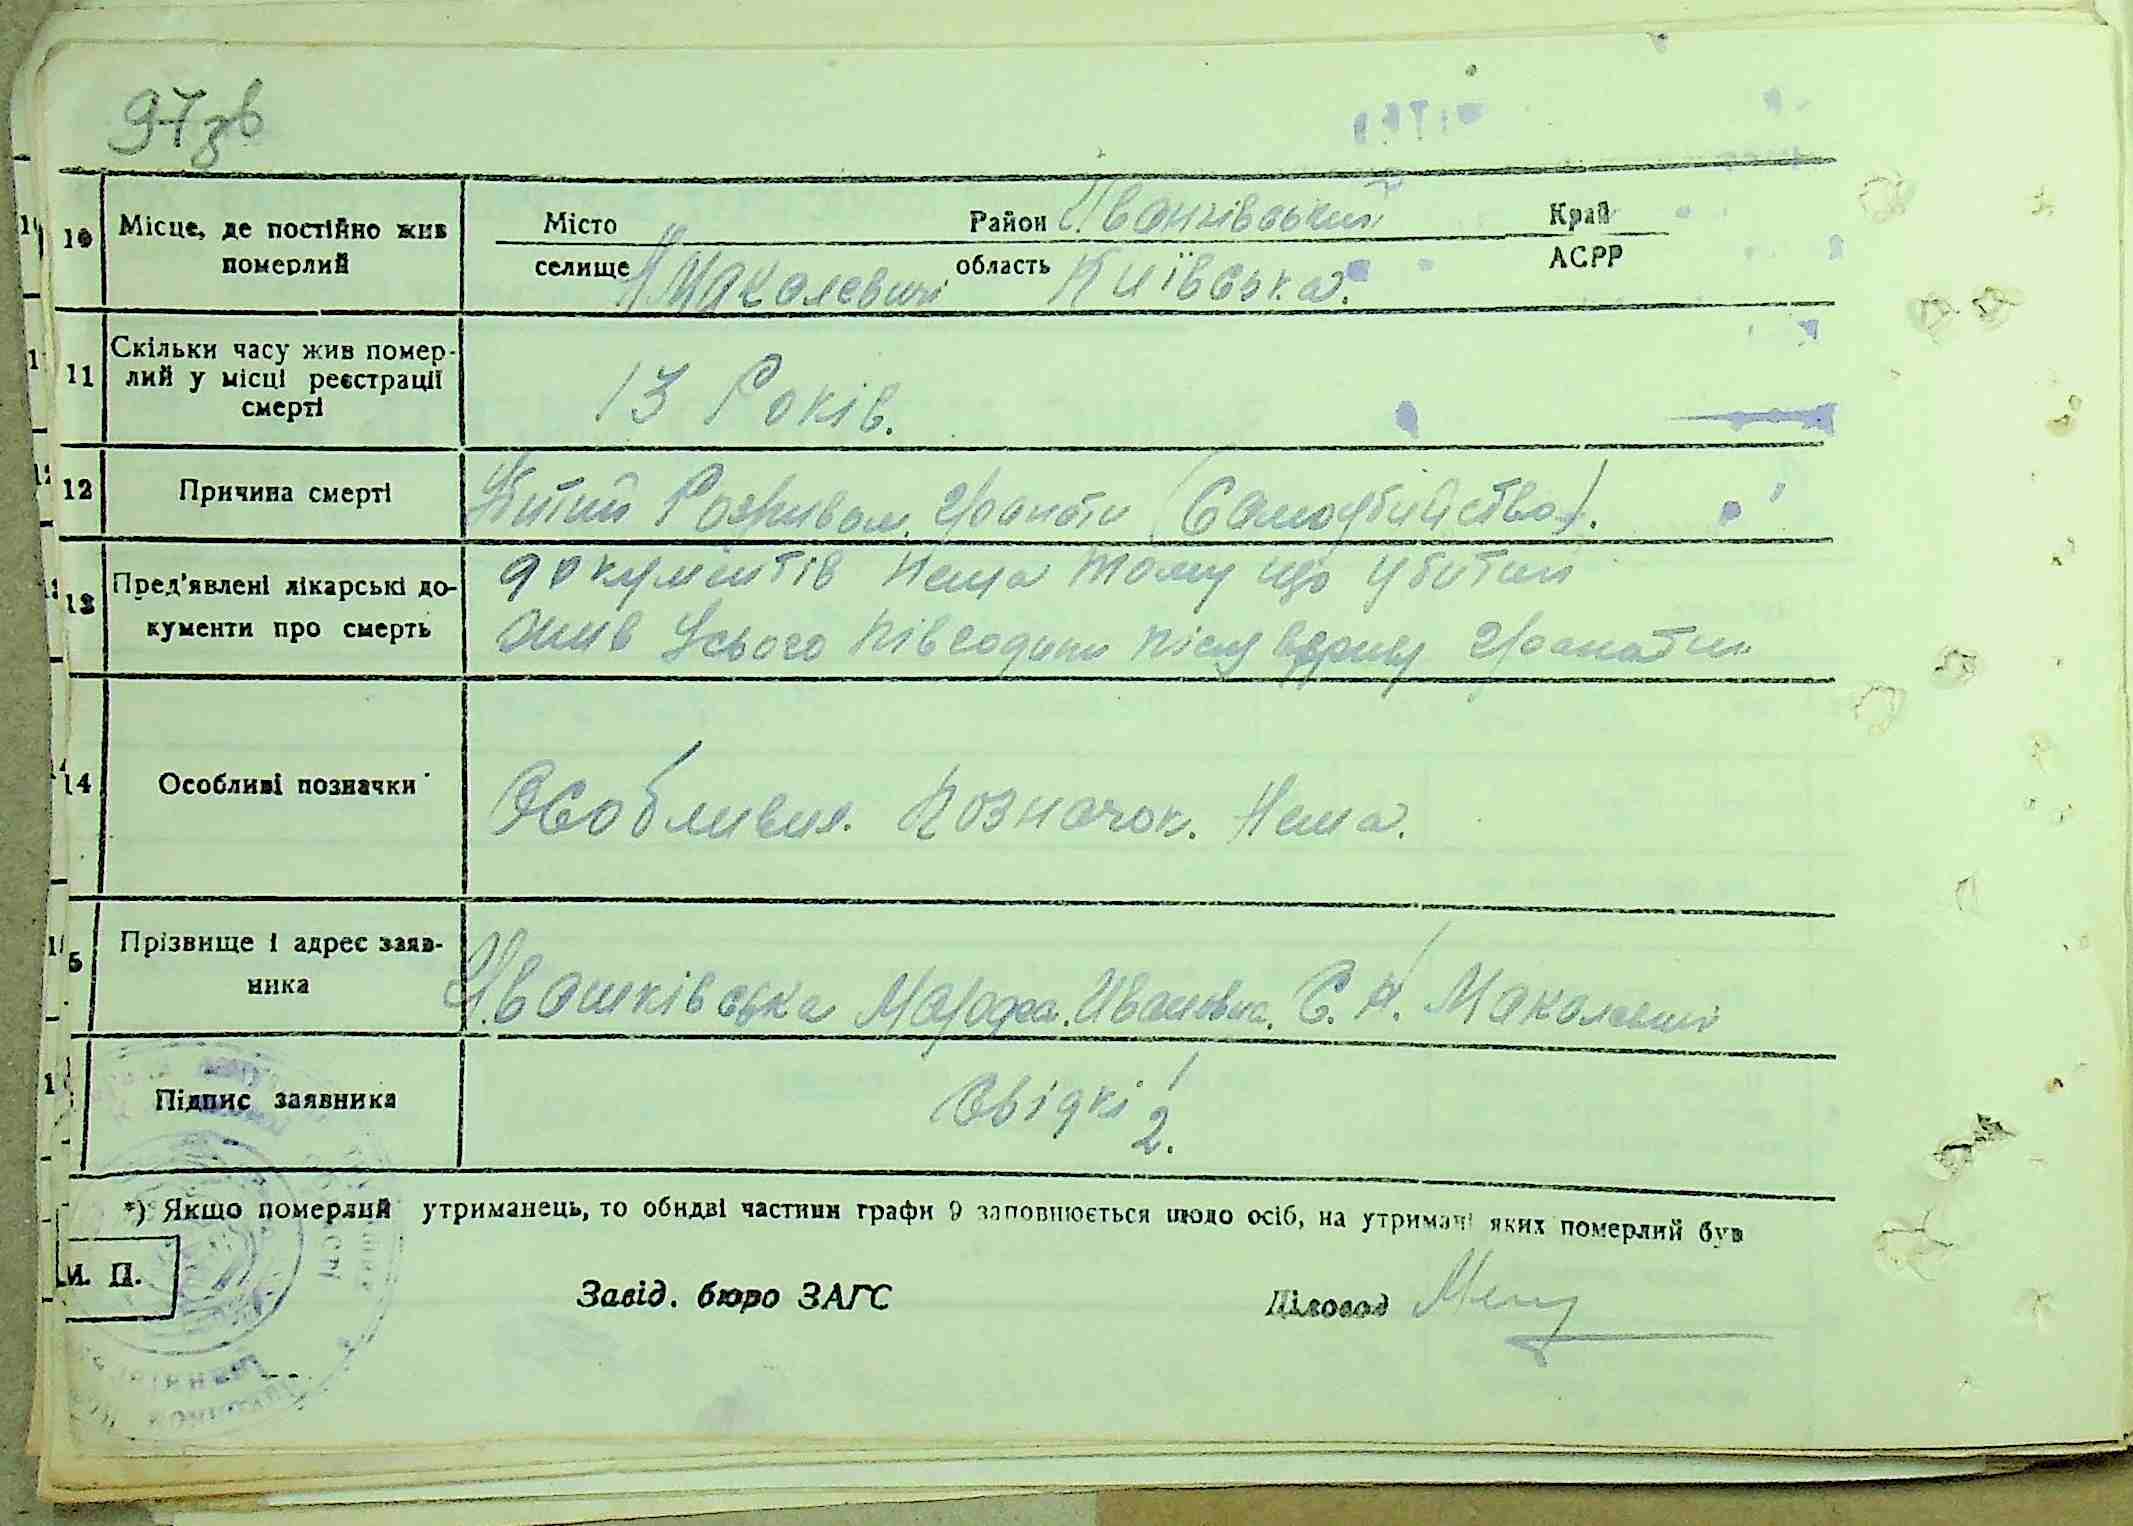 97зв
10 Місце, де постійно жив померлий
Місто Район Иванківский Край
селище Н Маколевичі область Київська. АСРР
11 Скільки часу жив помер-
лий у місці реєстрації
смерті
13 Років.
12 Причина смерті
Убитий Розривом гранати (Самоубийство).
13 Пред'явлені лікарські до-
кументи про смерть
документів нема тому що убитий
жив Усього півгодини після гранати
14 Особливі позначки
Особливих. Позначок. Нема.
5 Прізвище і адрес заяв-
ника
Ивашківська Марфа. Ивановна. С. Н. Маколевичі
Підпис заявника
Свідкі 1
2.
*) Якщо померлий утриманець, то обидві частини графи 9 заповнюється щодо осіб, на утримані яких померлий був
М. П.
Завід. бюро ЗАГС Діловод